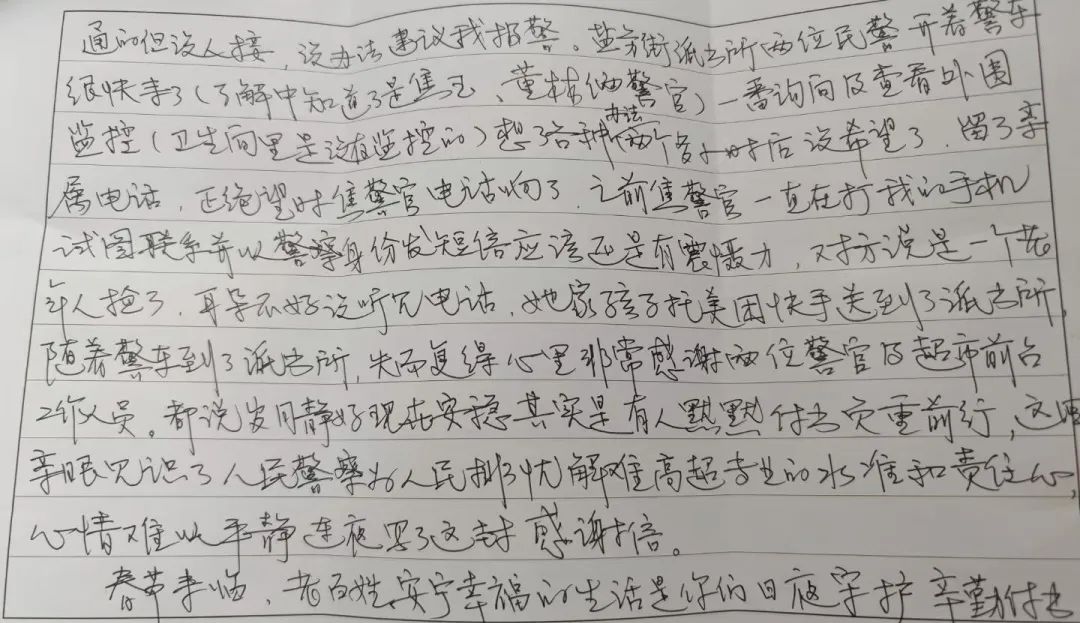 通的但没人接，没办法建议我报警。盐方街派出所两位民警开着警车
很快来了（了解中知道了是焦玉、董栋俩警官）一番询问及查看外围
监控（卫生间里是没有监控的）想了各种办法两个多小时后没希望了，留了亲
属电话，正绝望时焦警官电话响了，之前焦警官一直在打我的手机
试图联系并以警察身份发短信应该还是有震慑力，对方说是一个老
年人捡了，耳朵不好没听见电话，她家孩子托美团快手送到了派出所，
随着警车到了派出所，失而复得心里非常感谢两位警官及超市前台
工作人员。都说岁月静好现在安稳其实是有人默默付出负重前行，这
亲眼见识了人民警察为人民排忧解难高超专业的水准和责任心，
心情难以平静连夜写了这封感谢信。
春节来临，老百姓安宁幸福的生活是你们日夜守护辛勤付出